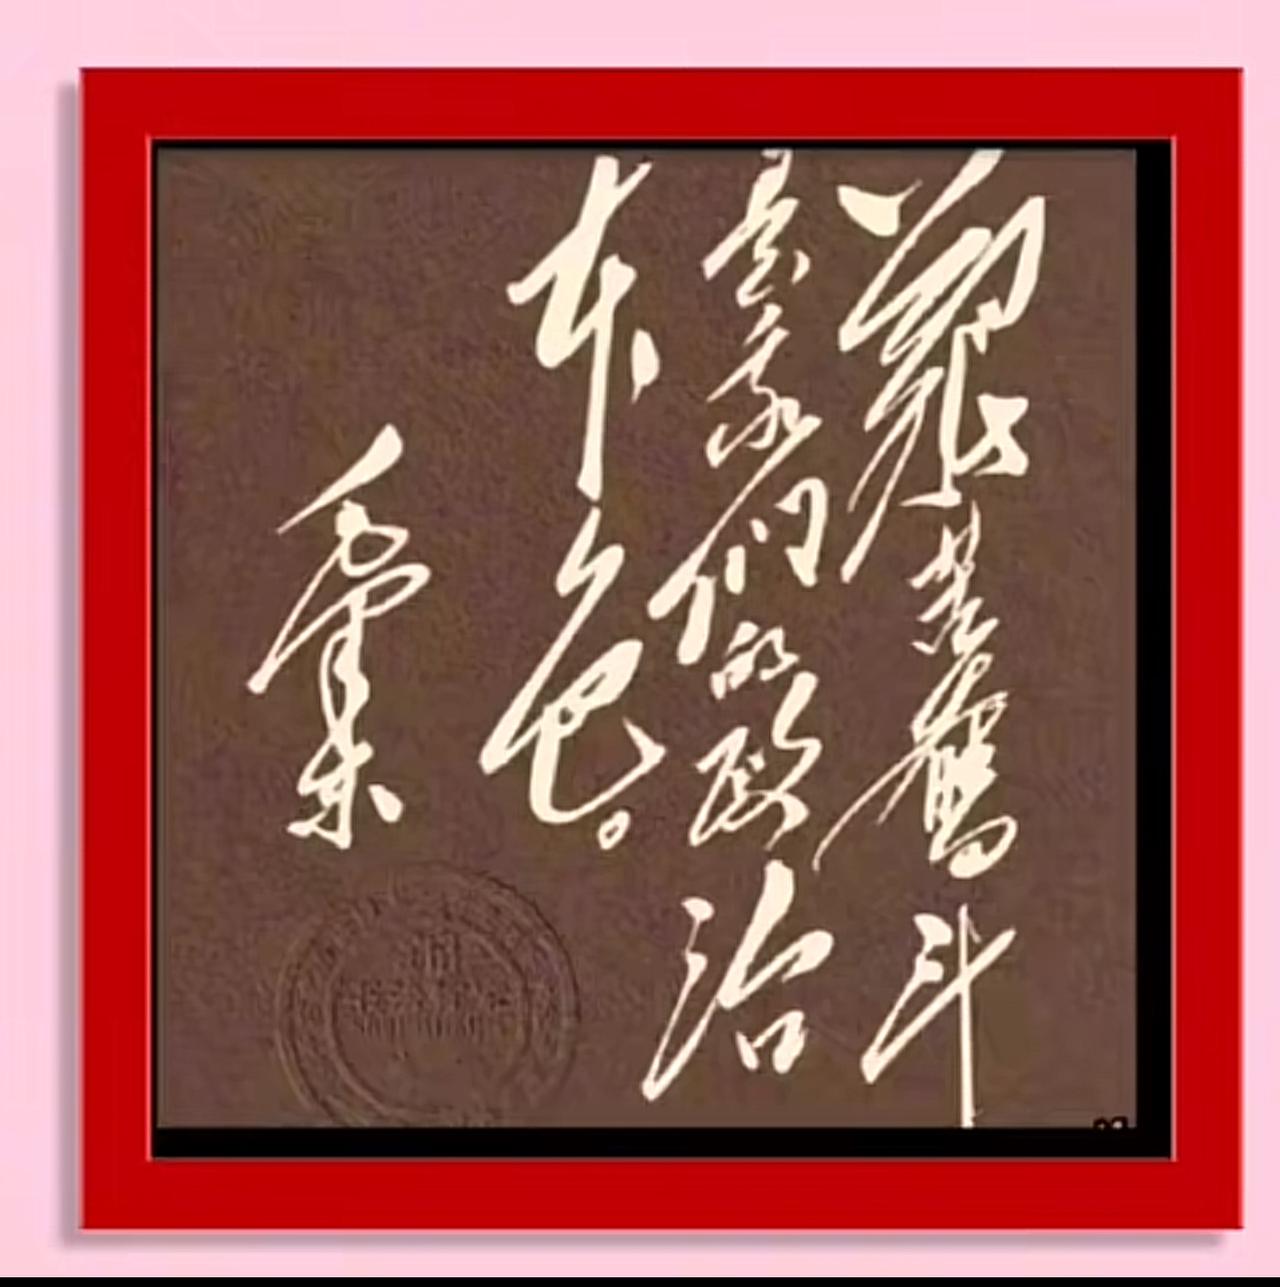 艱苦奮斗
是我们的政治
本色。
毛泽东